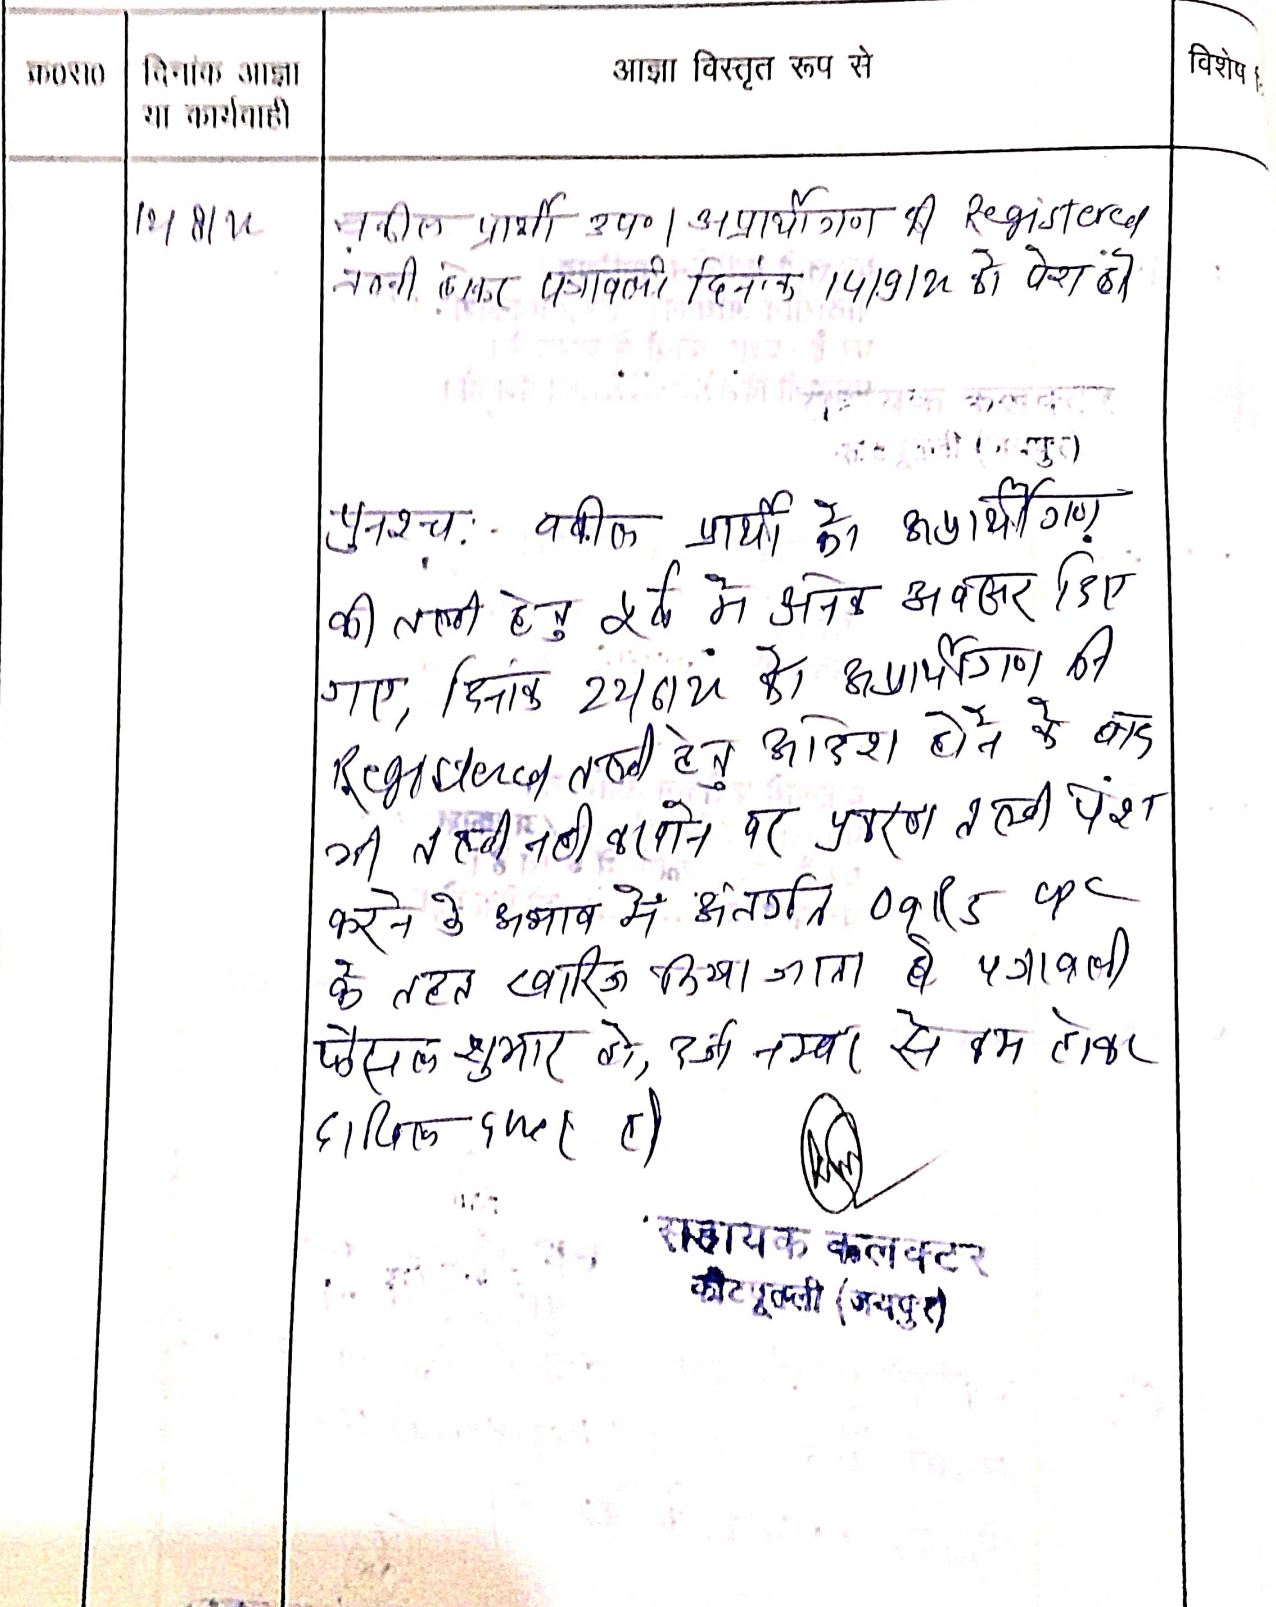 क्र०सं० दिनांक आज्ञा या कार्यवाही आज्ञा विस्तृत रूप से विशेष
वकील प्रार्थी उप०। अप्रार्थीगण की Registered
तलबी होकर पत्रावली दिनांक 14/9/22 को पेश हो
पुनश्च:- वकील प्रार्थी को अप्रार्थीगण
की तलबी हेतु पूर्व में अनेक अवसर दिए
गए, दिनांक 22/6/22 को अप्रार्थीगण की
Registered तलबी हेतु आदेश होने के बाद
भी तलबी नही करवाने पर प्रकरण तलबी पेश
करने के अभाव में अंतर्गत O9R5 CPC
के तहत खारिज किया जाता है पत्रावली
फैसल शुमार हो, दर्ज नम्बर से कम होकर
दाखिल दफ्तर हो
सहायक कलक्टर
कोटपूतली (जयपुर)